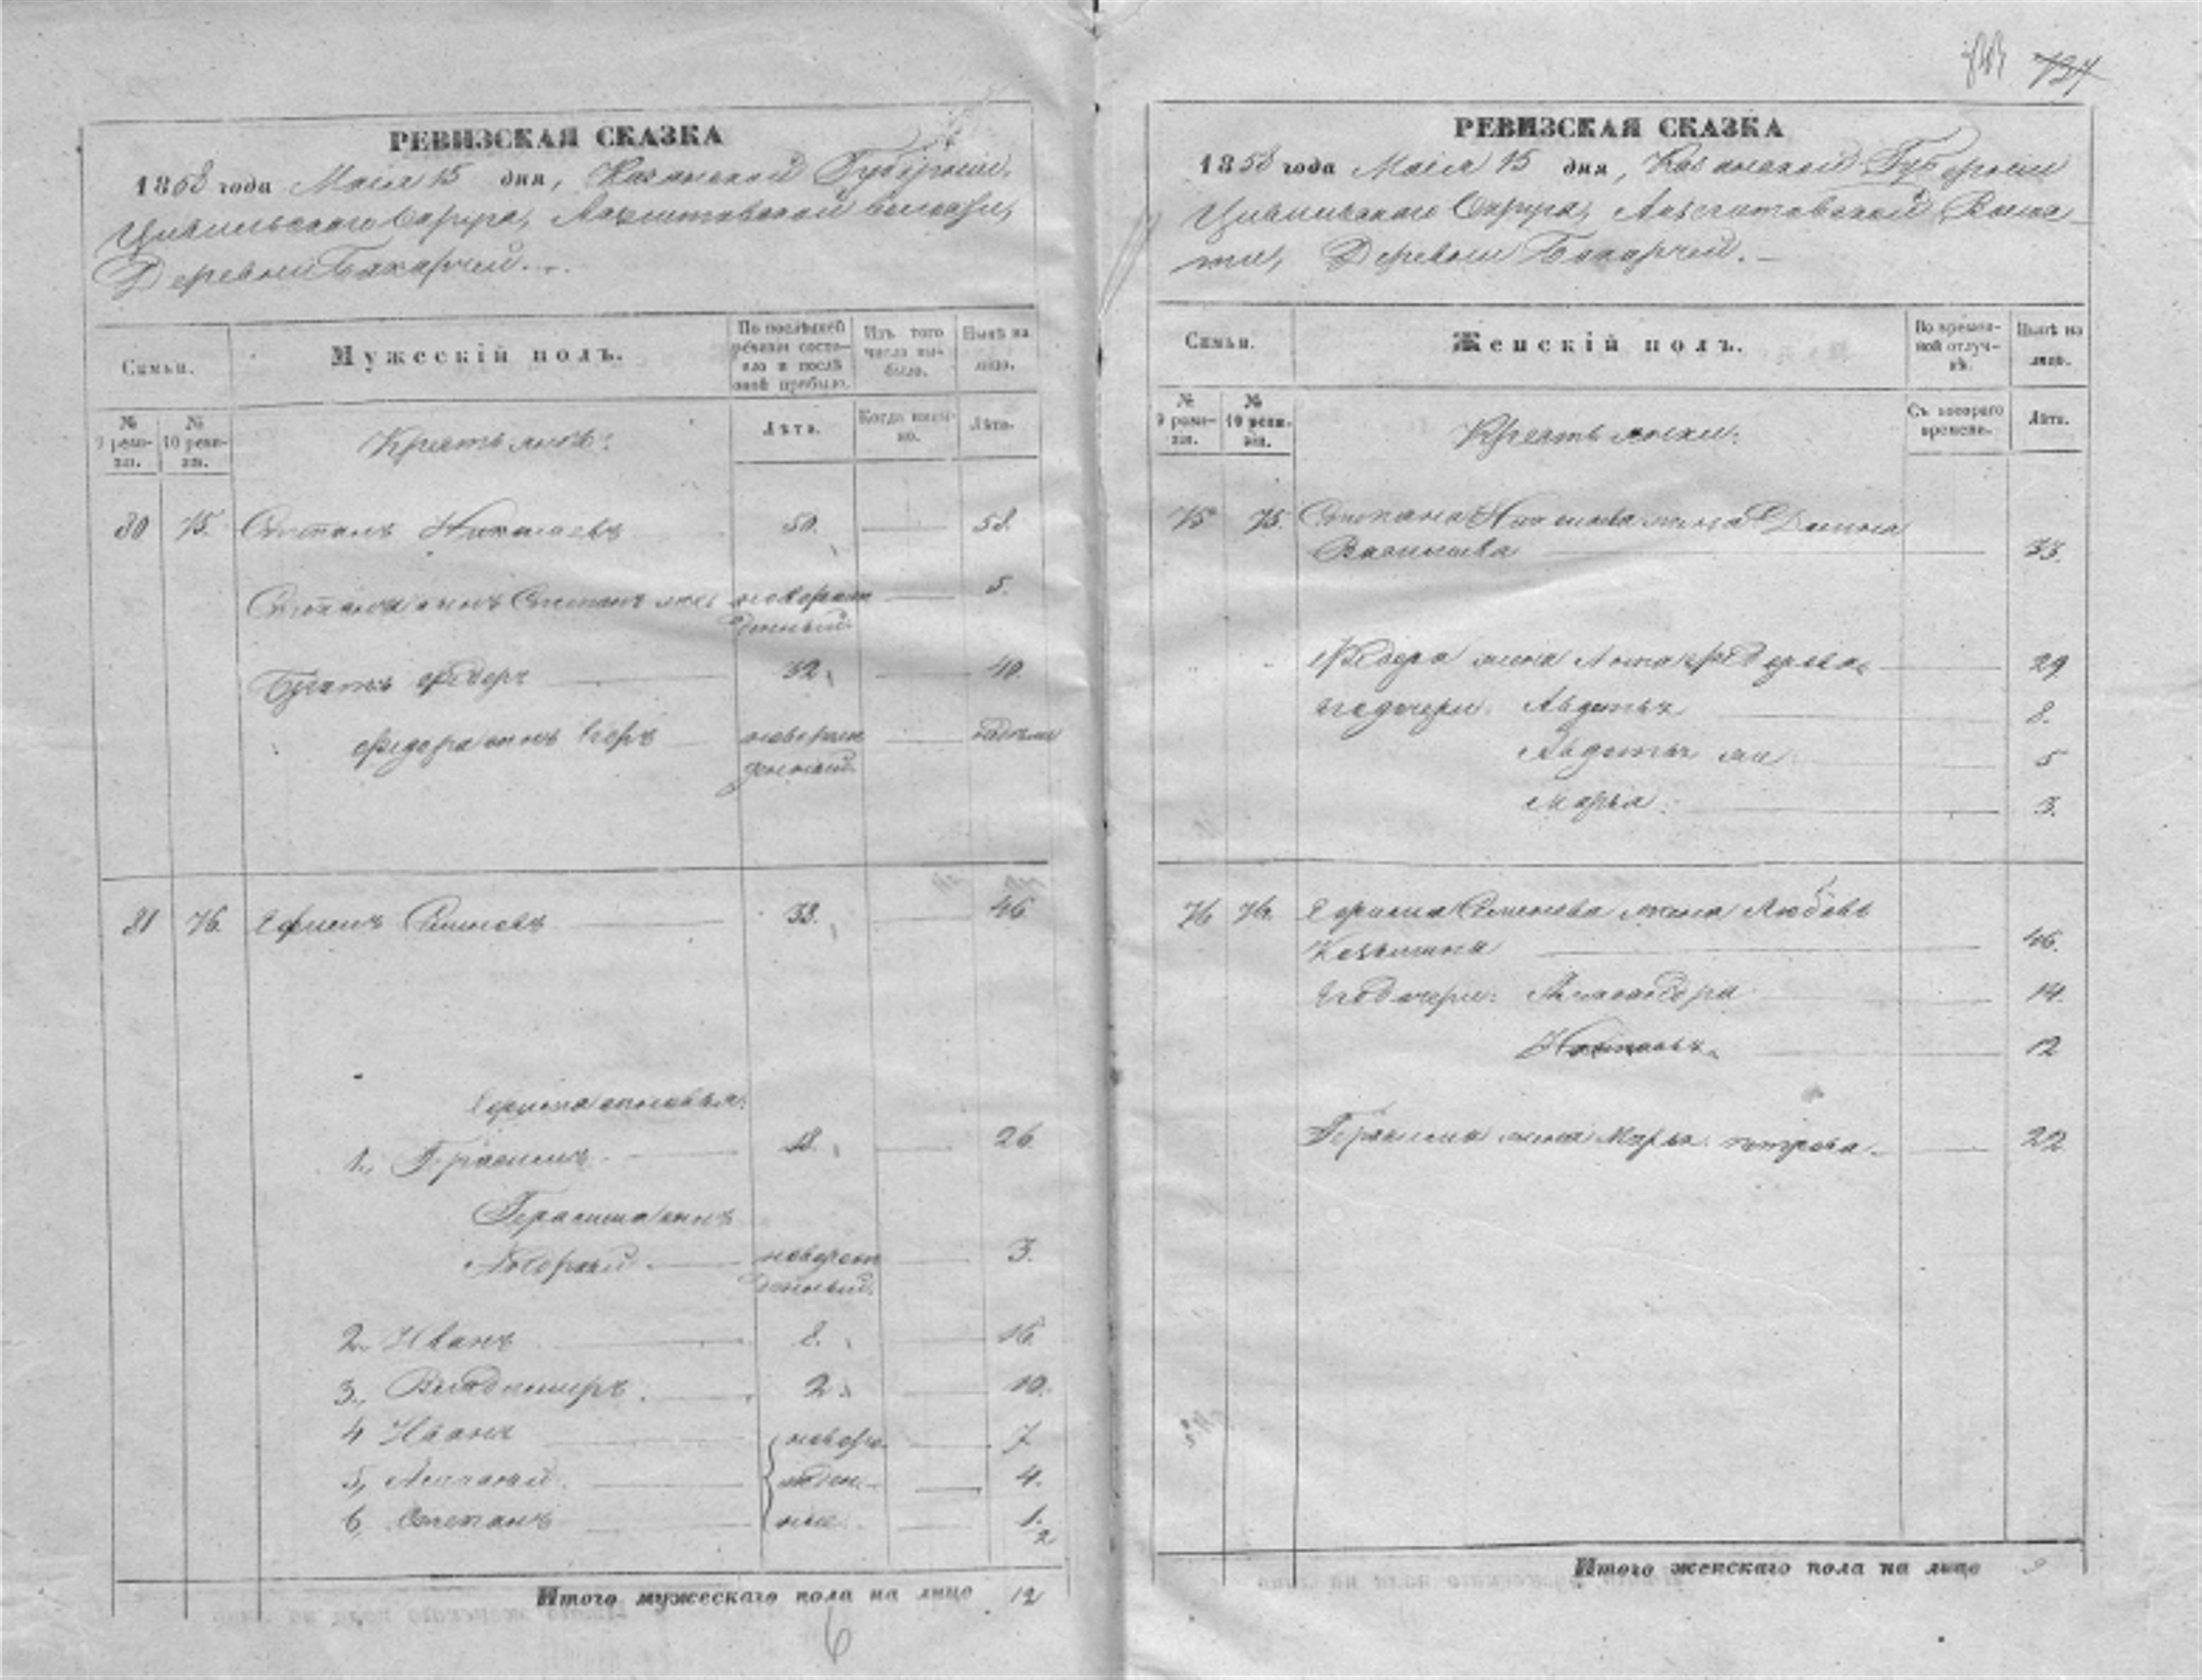 РЕВИЗСКАЯ СКАЗКА
1858 года Маія 15 дня, Казанской Губерніи,
Цивильскаго Округа, волости,
Деревни Бахарчей.
Семьи.
Мужескій полъ.
По послѣдней ревизіи состояло и послѣ оной прибыло.
Изъ того числа выбыло.
Нынѣ на лицо.
№ 9 реви-
зіи.
№ 10 реви-
зіи.
Крестьяне:
Лѣта.
Когда имен-
но.
Лѣта.
80 75. Степанъ Николаевъ 50. 58.
Степана сынъ Степанъ новорож 5.
денный.
Братъ Федоръ 32. 40.
Федора сынъ Егоръ новорож
денный.
81 76. Ефимъ Семеновъ 38. 46.
Ефима сыновья:
1., Герасимъ 18. 26.
Герасима сынъ
Григорій новорож 3.
денный.
2., Иванъ 8. 16.
3., Владимеръ 2. 10.
4 Иванъ новоро 7
5, жден- 4.
6, Степанъ ные 1.
2
Итого мужескаго пола на лицо 12
6
727
РЕВИЗСКАЯ СКАЗКА
1858 года Маія 15 дня, Казанской Губерніи
Цивильскаго Округа, Воло-
сти, Деревни Бахарчей.
Семьи.
Женскій полъ.
Во времен-
ной отлуч-
кѣ.
Нынѣ на
лицо.
№ 9 реви-
зіи.
№ 10 реви-
зіи.
Крестьянки:
Съ котораго
времени.
Лѣта.
75 75. Степана Николаева жена
Васильева 33.
Федора жена Анна Федорова 29
Ихъ дочери: Авдотья 8.
Авдотья 5
Марья 3.
76 76. Ефима Семенова жена Любовь
Козьмина 46.
Ихъ дочери: 14.
Наталья 12
Герасима жена Марья Петрова 22
Итого женскаго пола на лицо 9